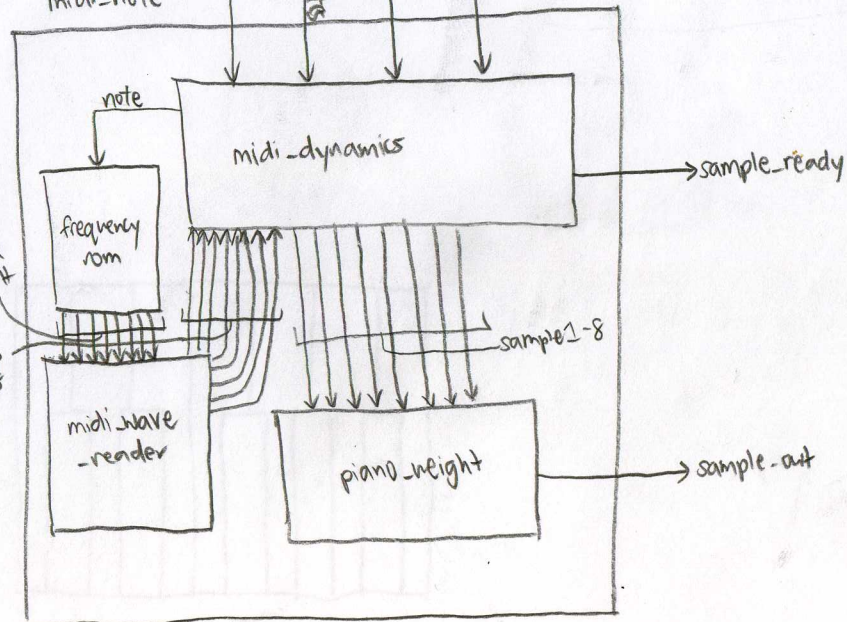 midi_note
note
midi_dynamics
sample_ready
frequency
rom
sample1-8
midi_wave
_reader
piano_weight
sample_out